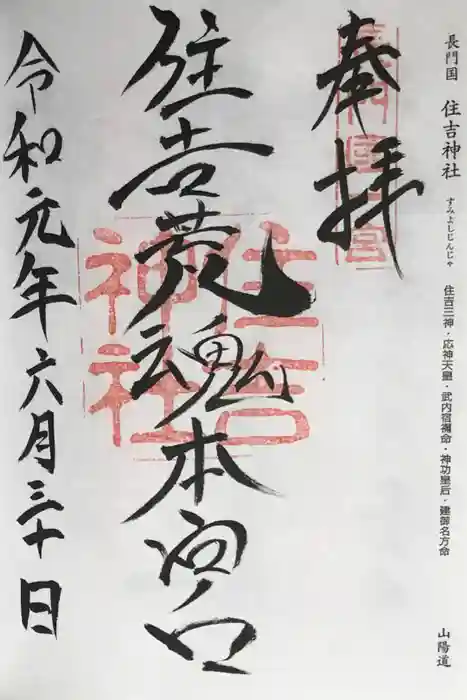 長門国 住吉神社 すみよしじんじゃ 住吉三神・応神天皇・武内宿禰命・神功皇后・建御名方命 山陽道
奉拝
住吉荒魂本宮
住吉
神社
令和元年六月三十日